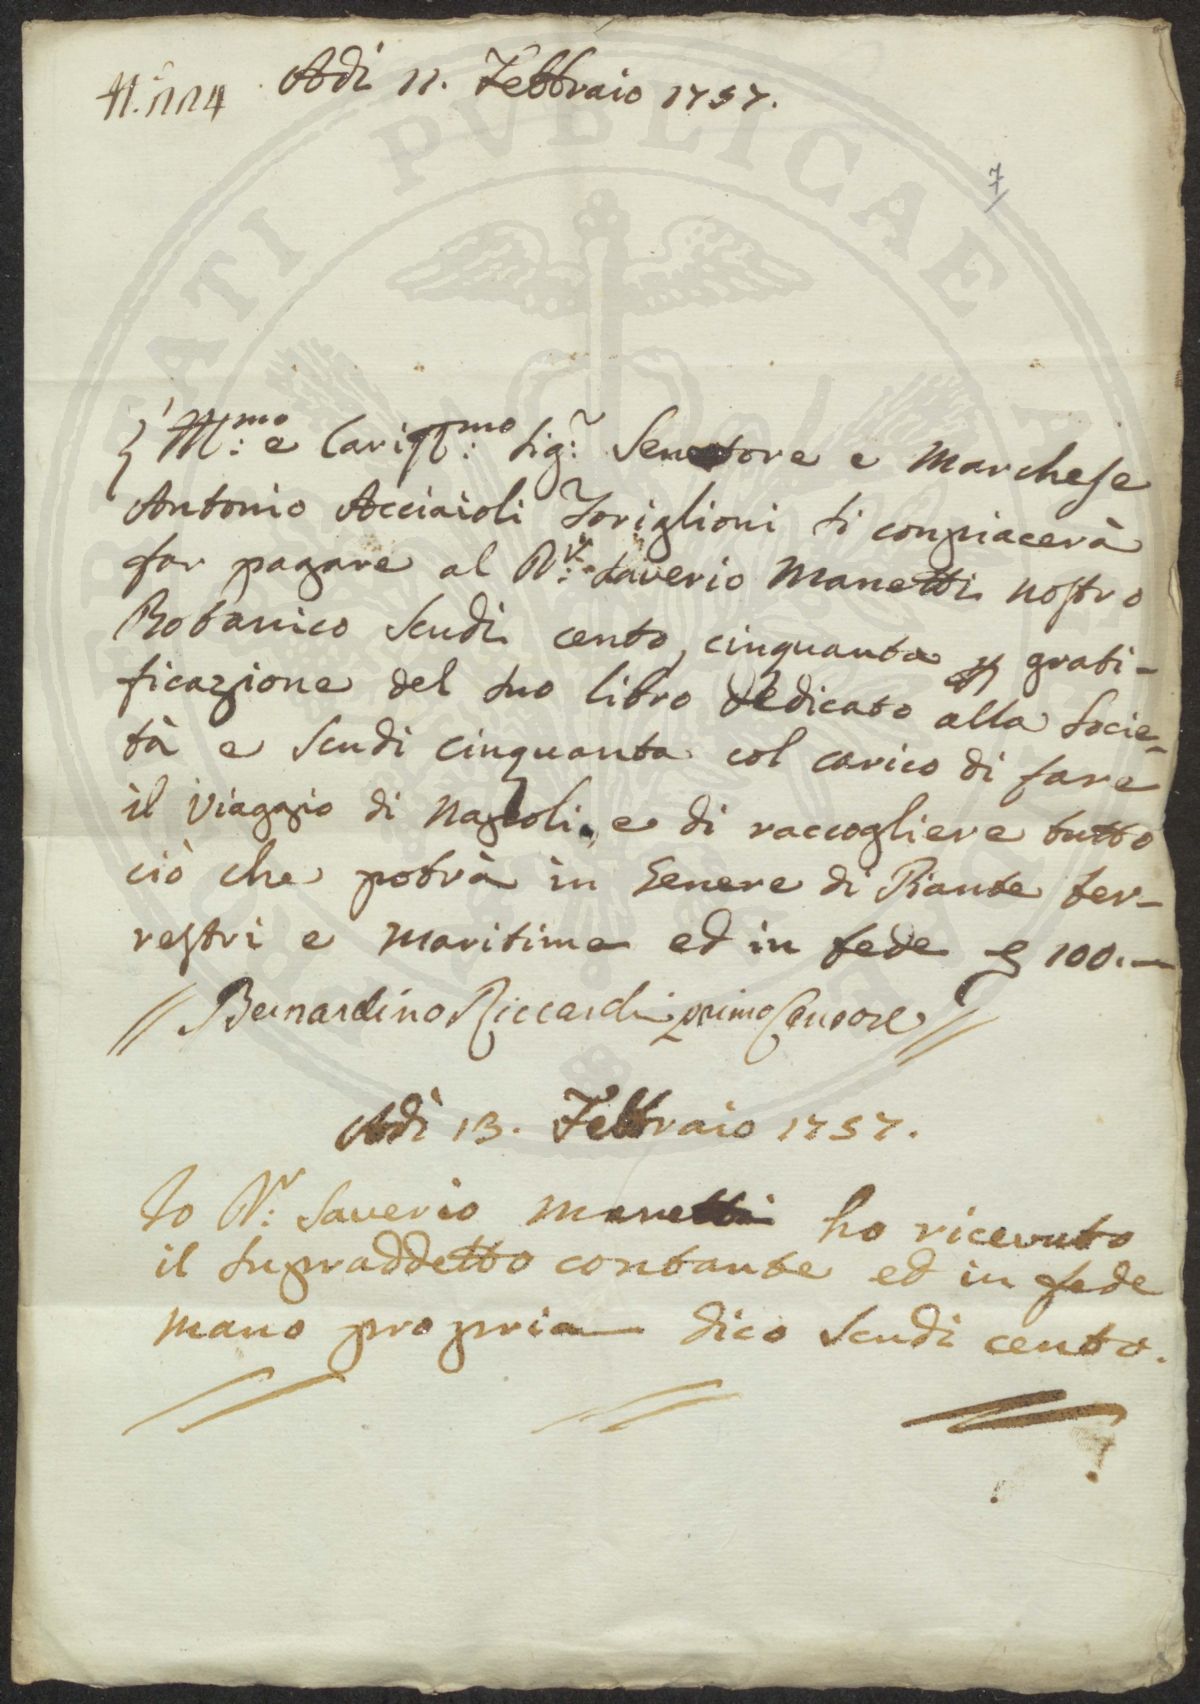 N.° 114
Adì 11. Febbraio 1757.
7
Ill.mo e Cariss.mo Sig.r Senatore e Marchese
Antonio Acciaioli Toriglioni si conpiacerà
far pagare al D.r Saverio Manetti nostro
Botanico Scudi cento, cinquanta p grati-
ficazione del suo libro dedicato alla Socie-
tà e Scudi cinquanta col carico di fare
il Viaggio di Napoli e di raccogliere tutto
ciò che potrà in Genere di Piante ter-
restri e Maritime ed in fede 100.—
Bernardino Riccardi primo Censore
Adì 13. Febbraio 1757.
Io D.r Saverio Manetti ho ricevuto
il supraddetto contante ed in fede
mano propria dico Scudi cento.